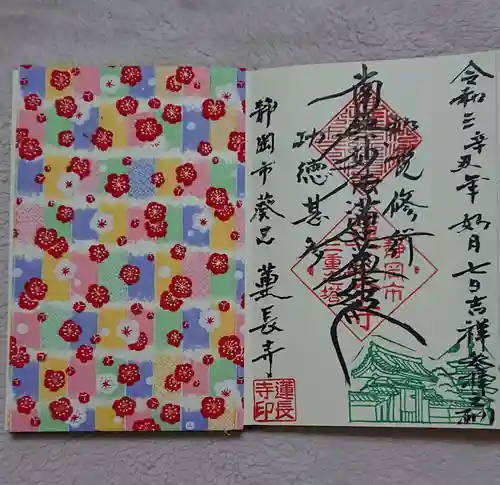 令和三辛丑年 如月 七日 吉祥
修行
南無妙法蓮華経
功徳甚多
静岡市葵区 蓮長寺
静岡市
三重塔
蓮長寺印